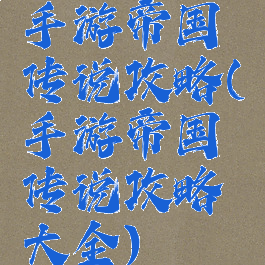 手游帝国
传说攻略(
手游帝国
传说攻略
大全)